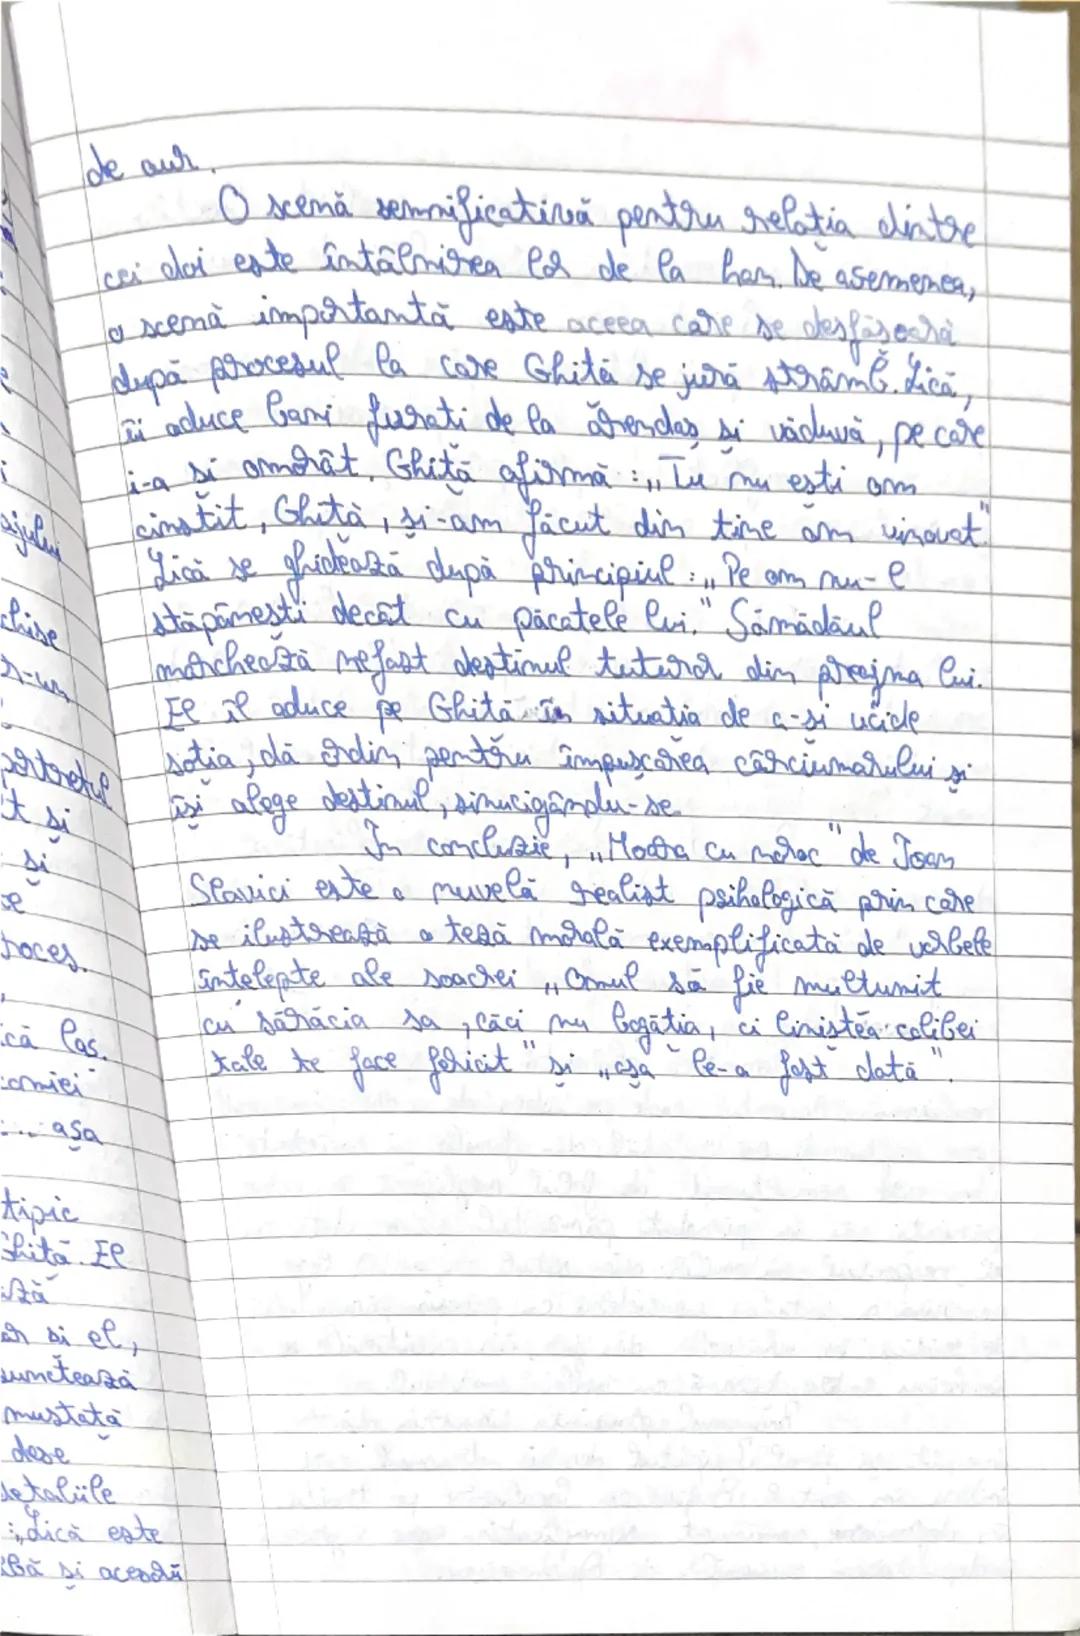 de aur.
O scenă semnificativă pentru relația dintre
cei doi este întâlnirea lor de la han. De asemenea,
o scenă importantă este aceea care se desfășoară
după procesul la care Ghiță se jură strâmb. Lică,
îi aduce bani furați de la arendaș și văduvă, pe care
i-a și omorât. Ghiță afirmă: „Tu nu ești om
cinstit, Ghiță, și-am făcut din tine om vinovat”
Lică se ghidează după principiul: „Pe om nu-l
stăpânești decât cu păcatele lui.” Sămădăul
marchează nefast destinul tuturor din preajma lui.
El îl aduce pe Ghiță în situația de a-și ucide
soția, dă ordin pentru împușcarea cârciumarului și
își alege destinul, sinucigându-se.
În concluzie, „Moara cu noroc” de Ioan
Slavici este o nuvelă realist psihologică prin care
se ilustrează o teză morală exemplificată de vorbele
înțelepte ale soacrei „Omul să fie mulțumit
cu sărăcia sa, căci nu bogăția, ci liniștea colibei
tale te face fericit” și „așa le-a fost dată”.
ajului
chise
r-un
portretul
t și
și
roces.
ică las.
comiei
... așa
tipic
Ghiță. El
ză
ar și el,
punctează
mustață
dese
detaliile
:„Lică este
bă și acordă